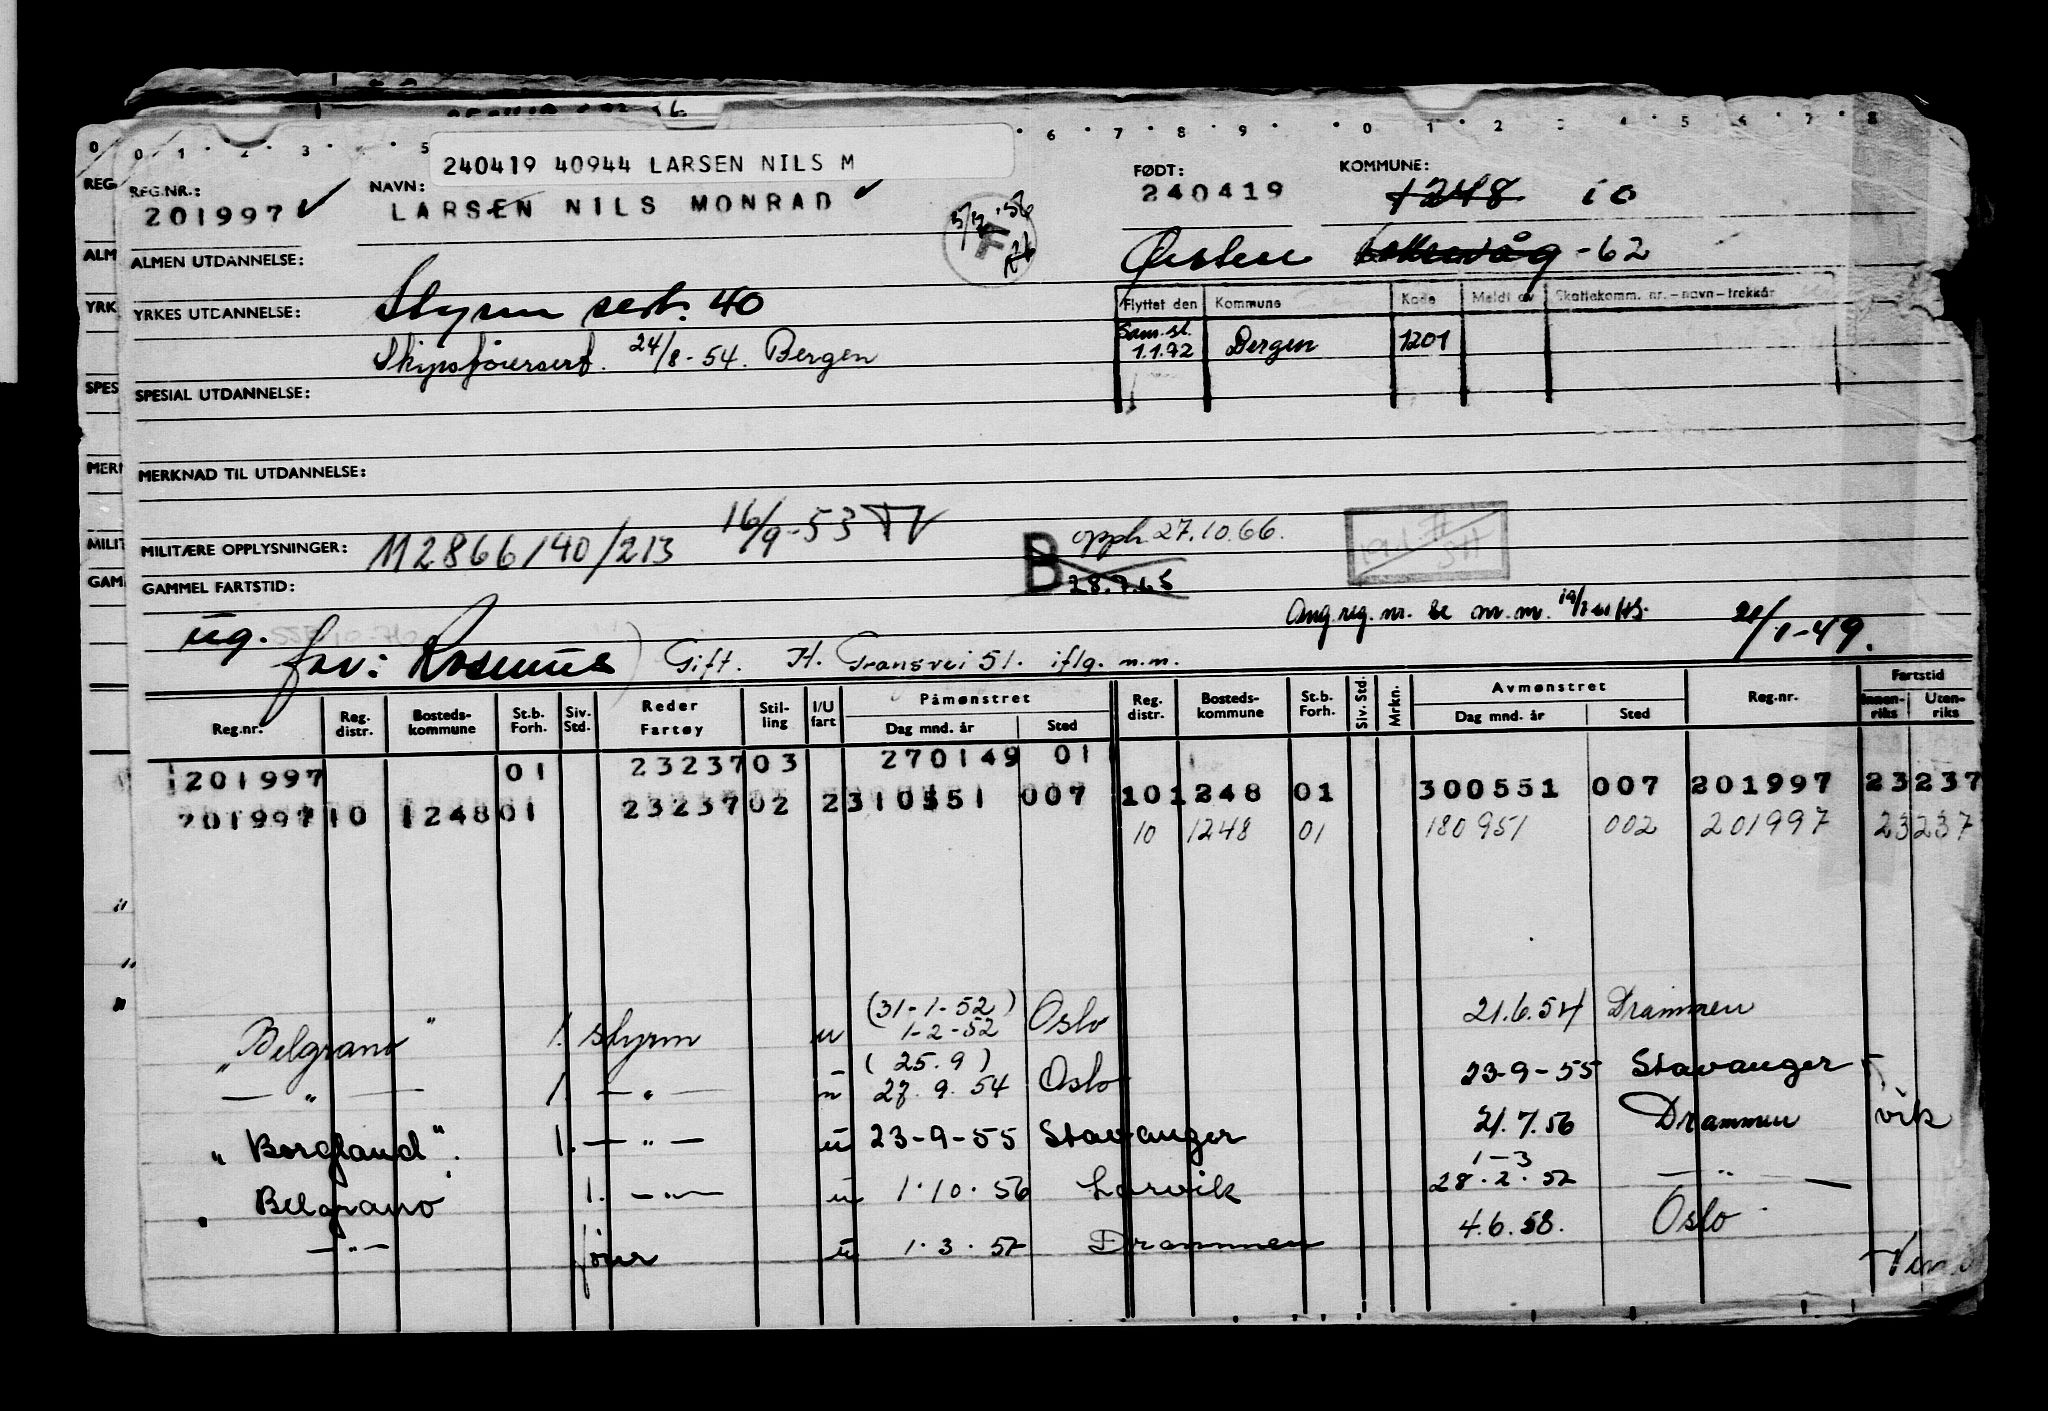 240419 40944 LARSEN NILS M
REG.NR.: 201997 NAVN: LARSEN NILS MONRAD
FØDT: 240419
KOMMUNE: 1248 10
ALMEN UTDANNELSE:
-62
YRKES UTDANNELSE: Styrm sert. 40
Skipsførersert. 24/8-54. Bergen
Flyttet den Kommune Kode Meldt av Skattekomm. nr.-navn-trekkår
Sam.sl. 1.1.72 Bergen 1201
SPESIAL UTDANNELSE:
MERKNAD TIL UTDANNELSE:
MILITÆRE OPPLYSNINGER: 112866/40/213 16/9-53
B opph 27.10.66.
28.7.65
GAMMEL FARTSTID:
Ang. reg. nr. se m.m.
21/1-49.
ug. far: Rasmus Gift. H. Fransvei 51. iflg. m.m.
Reg.nr. Reg. distr. Bosteds- kommune St.b. Forh. Siv. Std. Reder Fartøy Stil- ling I/U fart Påmønstret Dag mnd. år Sted Reg. distr. Bosteds- kommune St.b. Forh. Siv. Std. Mrkn. Avmønstret Dag mnd. år Sted Reg.nr. Fartstid Innen- riks Uten- riks
201997 01 23237 03 270149 01
201997 10 1248 01 23237 02 2 310551 007 10 1248 01 300551 007 201997 23 237
10 1248 01 180951 002 201997 23 237
"Belgrano" 1. styrm u (31-1-52) 1-2-52 Oslo 21.6.54 Drammen
— " — 1. — " — u (25.9) 27.9.54 Oslo 23-9-55 Stavanger
"Borgland". 1. — " — u 23-9-55 Stavanger 21.7.56 Drammen
"Belgrano" 1. — " — u 1.10.56 Larvik 1-3 28.2.57 — " —
— " — fører u 1.3.57 Drammen 4.6.58. Oslo